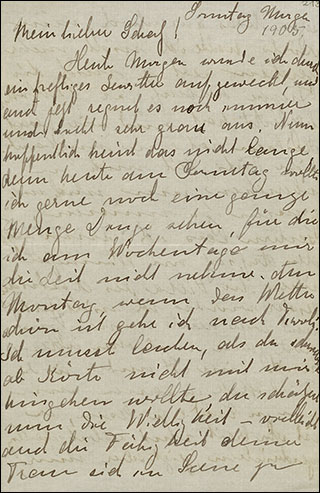 Sonntag Morgen
Mein lieber Schatz! 1905
Heute Morgen wurde ich durch
ein heftiges Gewitter aufgeweckt, und
und jetzt regnet es noch immer
und sieht sehr grau aus. Nun
hoffentlich bleibt das nicht lange
denn heute am Sonntag wollte
ich gerne noch eine ganze
Menge Dinge sehen, für die
ich am Wochentage mir
die Zeit nicht nehme. Am
Montag, wenn das Wetter
schön ist gehe ich nach Tivoli.
Ich musst lachen, als du
ob nicht mit mir
hingehen wollte, du
nun die
und die Fähigkeit deiner
Frau sich in Scene zu